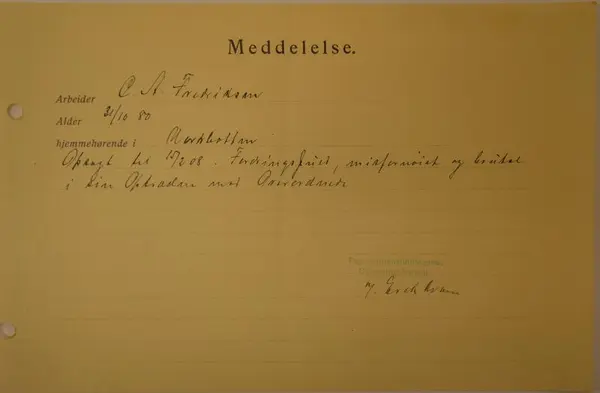 Meddelelse.
Arbeider C. A. Fredriksen
Alder 31/10 80
hjemmehørende i Nordbotten
Opsagt til 15/2 08. Fordringsfuld, misfornøiet og brutal
i sin Optræden mod Overordnede